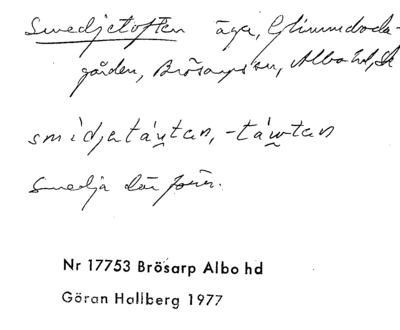 Smedjetoften äga, Glimmeboda-
gården, Brösarps sn, Albo hd, Sk
smidjatáu̯tan, -táwtan
Smedja där förr.
Nr 17753 Brösarp Albo hd
Göran Hallberg 1977